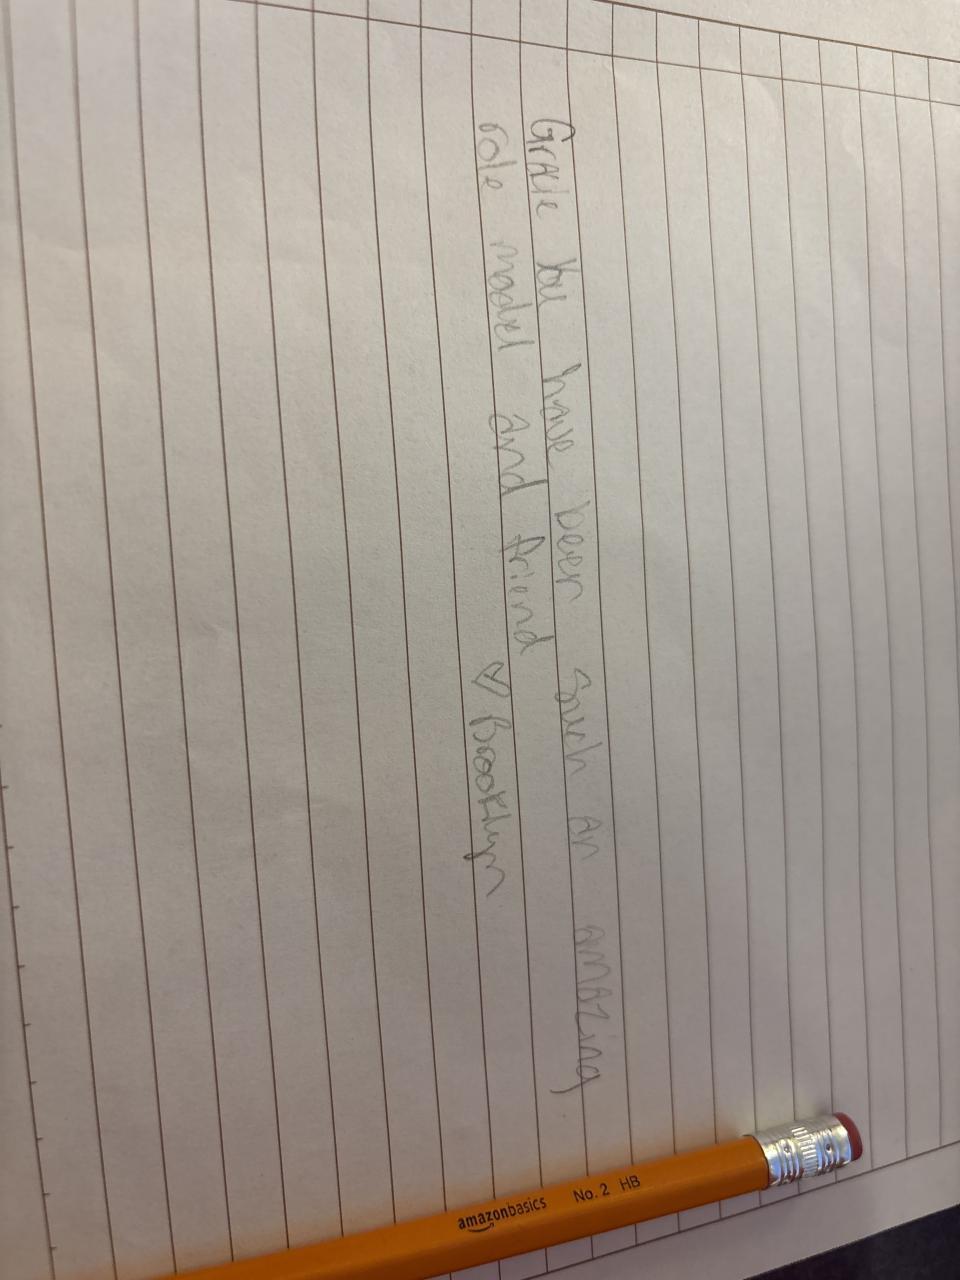 Gracie you have been such an amazing
role model and friend
♡ Brooklyn
amazonbasics No. 2 HB